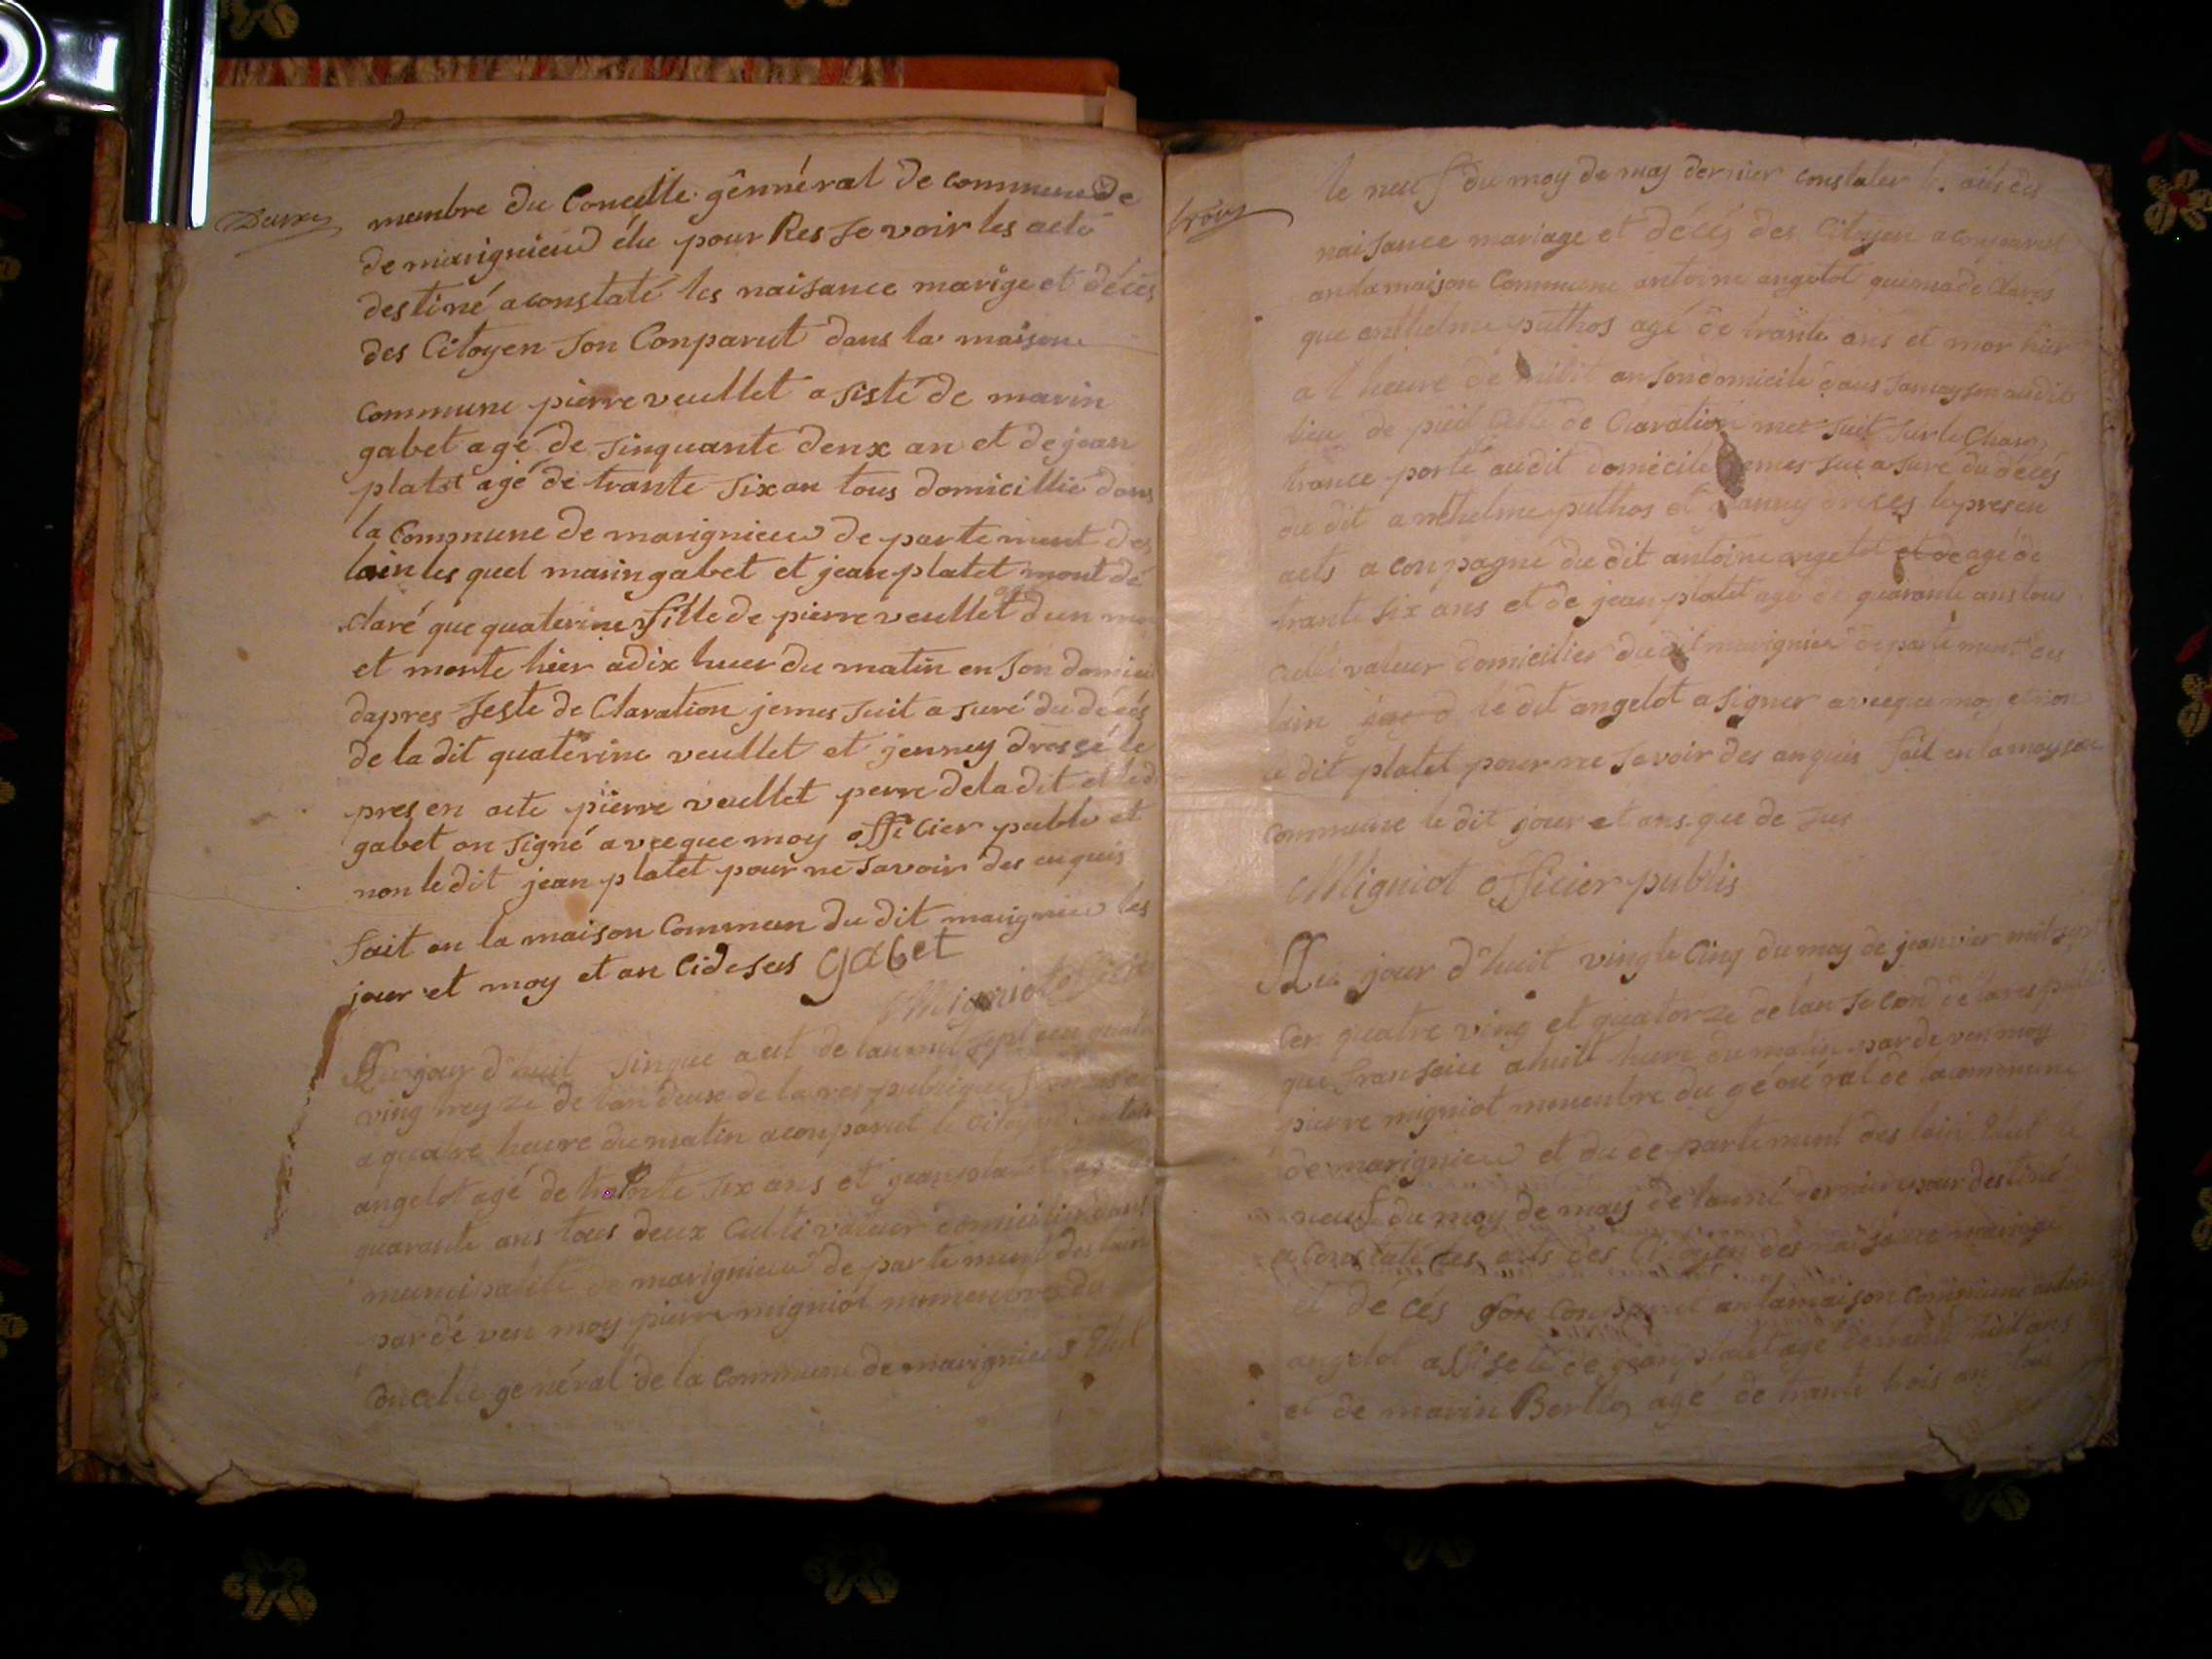 Deuxe
menbre du Concelle génnéral de commune de
de marignieud élu pour Res se voir les acte
destiné a constaté les naisance marige et déces
des Citoyen son Conparut dans la maison
commune pierre veullet a sisté de marin
gabet agé de sinquante deux an et de jean
platet agé de trante six an tous domicillié dans
la Commune de marignieu de partement de
lain les quel marin gabet et jean platet mont dé
claré que quaterine fille de pierre veullet agé dun
et morte hier a dix heur du matin en son domicil
dapres seste de Claration je mes suit a suré du décés
de la dit quaterine veullet et jenney dressé le
presen acte pierre veullet perre de la dit et led
gabet on signé avecque moy officier publi et
non le dit jean platet pour ne savoir des enquis
fait en la maison Commun du dit marignieu les
jour et moy et an cidesus gabet
Migniot
Aujour d'huit sinque aut de lan mil sept cen quatre
ving treyze de lan deux de la respublique
a quatre heure du matin aconparut le Citoyen
angelot agé de trante six ans et jean platet
quarante ans tous deux Cultivateur domicilié dans
municipalité de marignieu de partement des lain
par dé ven moy pierre migniot menenbre du
Concelle général de la Commune de marignieu Elut
trois
le neuf du moy de may dernier constater les aits des
naisance mariage et décés des Citoyen aconparut
an la maison Commune antoine angelot quema dé Claré
que anthelme puthos agé de trante ans et mor hier
a l heure de midit an son domicile dans sa mayson au dit
lieu de puit cette de Claration mes suit sur le Chan
trance porté au dit domicile jemes sui a suré du décés
du dit anthelme puthos et janney dreces le presen
acts a conpagne du dit antoine angelot et de agé de
trante six ans et de jean platet agé de quarante ans tous
cultivateur domicilier du dit marignieu de partement des
lain le dit angelot a signer avecque moy et non
le dit platet pour ne savoir des anquis fait en la mayson
commune le dit jour et ans que de sus
Migniot officier publis
Au jour d'huit vingte cinq du moy de jeanvier mil sept
Cen quatre ving et quatorze de lan se con de la respubli
que fransaise a huitt heure du matin par de ven moy
pierre migniot menenbre du général de la commune
de marignieu et du de partement des lain Elut le
neuf du moy de may de lanné dernière pour destiné
a Constaté les acts des Citoyen des naisance mariage
et décés son Conparut an la maison Commune antoine
angelot assisté de jean platet agé de huit ans
et de marin Berllio agé de trante trois an tous